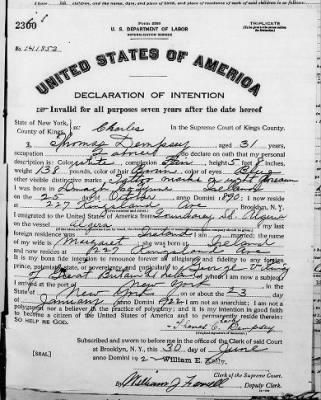 Form 2203
U. S. DEPARTMENT OF LABOR
NATURALIZATION SERVICE
TRIPLICATE
No. 141852
UNITED STATES OF AMERICA
DECLARATION OF INTENTION
Invalid for all purposes seven years after the date hereof
State of New York,
County of Kings,
In the Supreme Court of Kings County.
Charles
I, Thomas Dempsey aged 31 years,
occupation do declare on oath that my personal
description is: Color white, complexion height 5 feet 8 inches,
weight 138 pounds, color of hair Brown, color of eyes Blue
other visible distinctive marks Tattoo marks on right forearm
I was born in Ireland
on the 25 day of October anno Domini 1890; I now reside
at 227 Kingsland Ave Brooklyn, N. Y.
I emigrated to the United States of America from
on the vessel my last
foreign residence was Ireland I am married; the name
of my wife is Margaret she was born at Ireland
and now resides at 227 Kingsland Ave
It is my bona fide intention to renounce forever all allegiance and fidelity to any foreign
prince, potentate, state, or sovereignty, and particularly to George V King
of Great Britain & Ireland of whom I am now a subject;
I arrived at the port of New York in the
State of New York on or about the 3 day
of January anno Domini 1922 I am not an anarchist; I am not a
polygamist nor a believer in the practice of polygamy; and it is my intention in good faith
to become a citizen of the United States of America and to permanently reside therein:
SO HELP ME GOD.
Thomas C. Dempsey
Subscribed and sworn to before me in the office of the Clerk of said Court
at Brooklyn, N. Y., this 30 day of June
anno Domini 192
[SEAL]
William E.
Clerk of the Supreme Court.
By William J. Deputy Clerk.